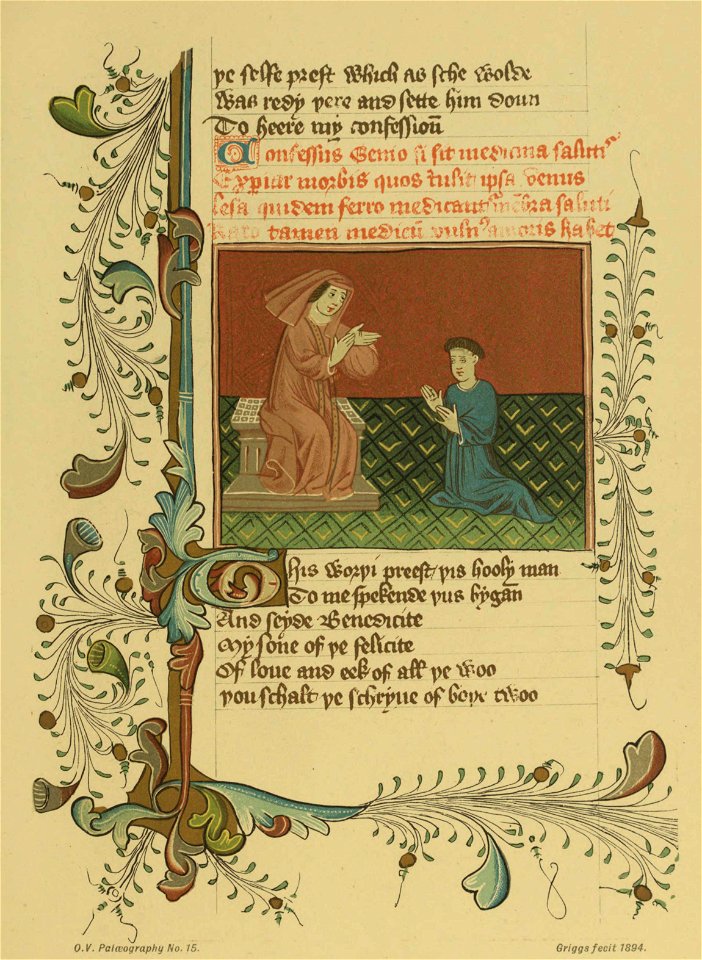 þe selfe prest which as sche wolde
Was redy þere and sette him doun
To heere my confessioū
Confessus Genio si sit medicina salutis
Expiar morbis quos tulit ipsa venus
lesa quidem ferro medicantur mēbra saluti
Raro tamen medicū vulnus amoris habet
This worþi preest þis hooly man
To me spekende þus bygān
And seyde Benedicite
My sone of þe felicite
Of loue and eek of all þe woo
þou schalt þe schryue of boþe twoo
O.V. Palæography No. 15.
Griggs fecit 1894.